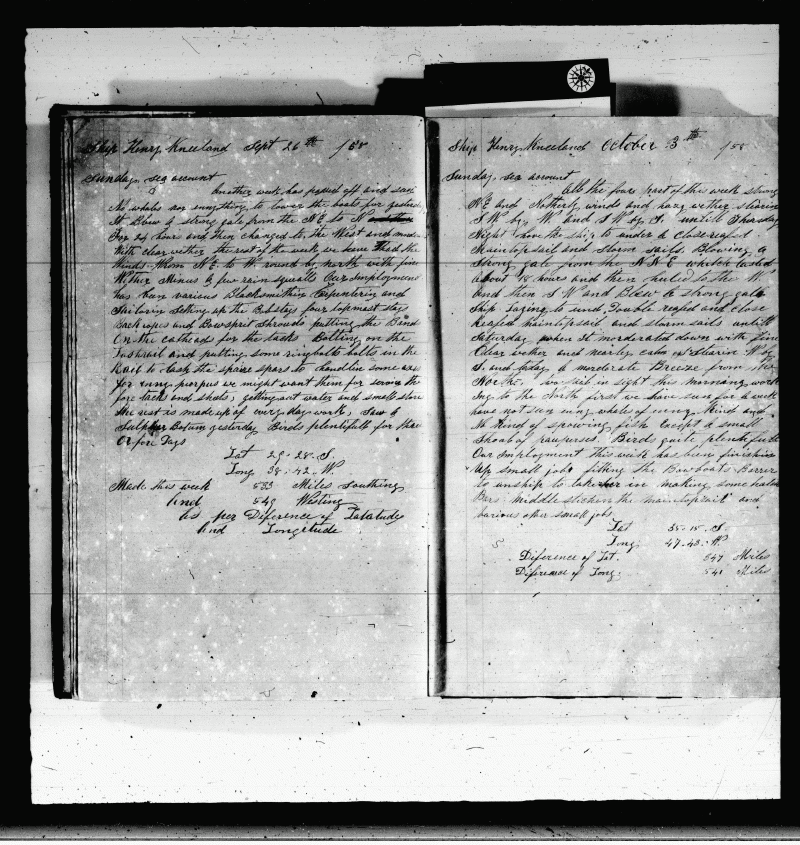 Ship Henry Kneeland Sept 26th /58
Sunday, sea account
Another week has passed off and seen
No whales or anything to lower the boats for yesterday
It Blew a strong gale from the N.E. to N
For 24 hours and then changed to the West and moder
With clear wether the rest of the week we have had the
Winds from N.E. to W. round by north with fine
Wether Minus a few rain squalls Our Imployment
has been various Blacksmithin Carpenterin and
Sailorin Setting up the Bobstay four topmast stays
Back ropes and Bowsprit Shrouds putting the Band
On the catheads for the tacks. Bolting on the
and putting some ringbolts bolts in the
Rail to lash the spare spars to handlin some
for enny purpus we might want them for
fore tacks and sheets, getting out water and small store
the rest is made up of every day work, Saw a
Sulpher Botum yesterday Birds plentifull for three
Or fore Days
Lat 29-28-S.
Long 38-42-W.
Made this week 533 Miles Southing
And 549 Westing
As per Diference of Latatude
And Longetude
Ship Henry Kneeland October 3th /58
Sunday, sea account
All the fore part of this week strong
N.E and Notherly winds and hazy wether stearin
S.W. by W and S.W. by S. untill Thursday
Night when the ship to under a close reefed
Maintopsail and storm sails. Blowing a
Strong gale from the N.N.E which lasted
about 18 hours and then hauled to the W
and then S.W and Blew a strong gale
Ship Laying to under Double reefed and close
Reefed maintopsail and storm sails untill
Saturday when it moderated down with fine
Clear wether and nearly calm Stearin W by
S. and today a moderate Breeze from the
North. two sail in sight this morning work
Ing to the North first we have seen for a week
have not seen eny whale of enny Kind and
No Kind of spowting fish except a small
Shoal of Birds quite plentifull
Our Imployment this week has been finishing
Up small jobs fitting the Bowboats
to unship to take her in making some
Bars middle stichin the maintopsail and
various other small jobs
Lat 35-15-S.
Long 47-43-W
Diference of Lat. 347 Miles
Diference of Long. 541 Miles